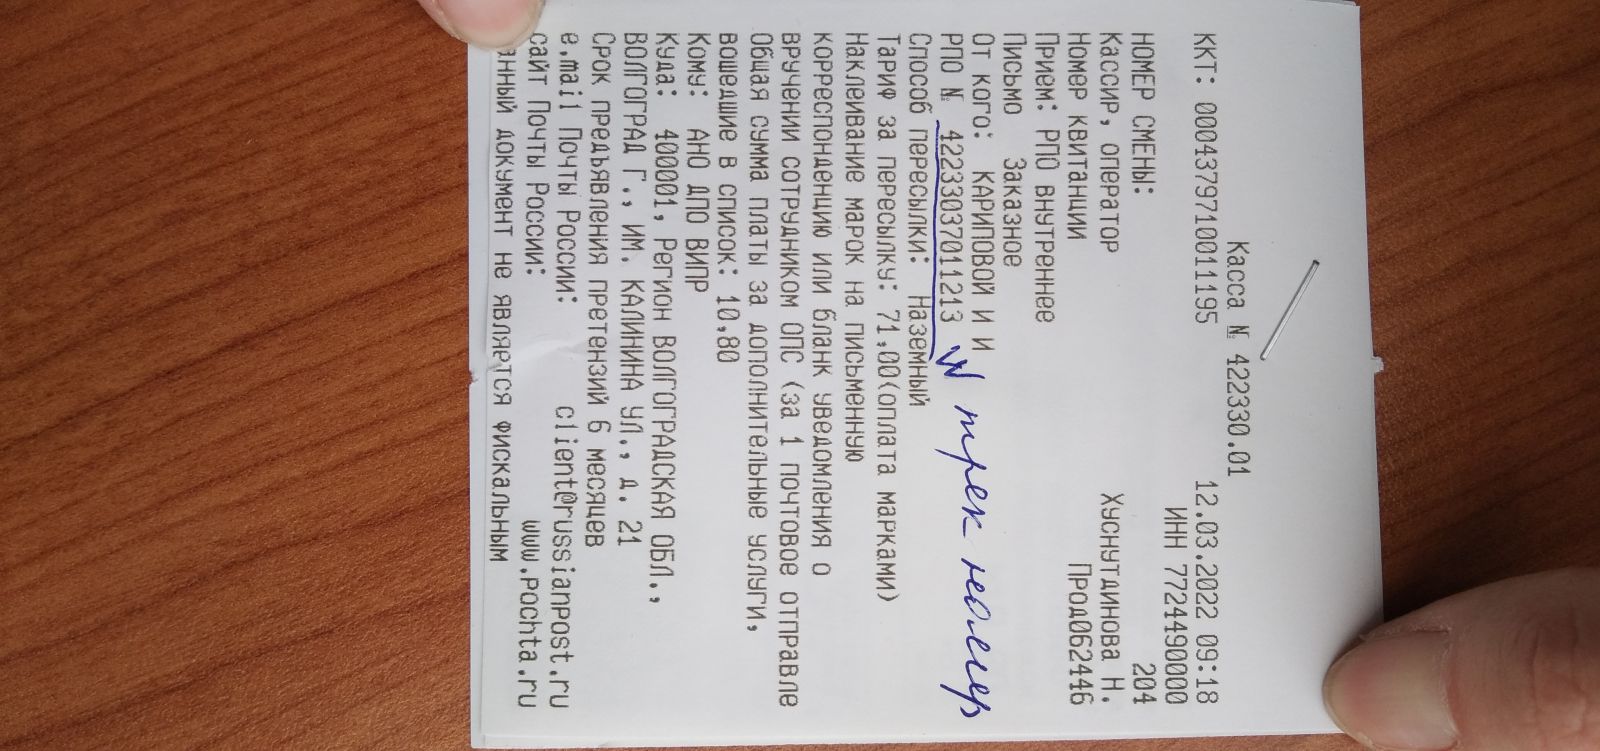 Касса № 422330.01
ККТ: 00043797100111​95 12.03.2022 09:18
ИНН 7724490000
НОМЕР СМЕНЫ: 204
Кассир, оператор Хуснутдинова Н.
Номер квитанции Прод062446
Прием: РПО внутреннее
Письмо Заказное
От кого: КАРИПОВОЙ И И
РПО № 42233037011213 трек номер
Способ пересылки: Наземный
Тариф за пересылку: 71,00(оплата марками)
Наклеивание марок на письменную
корреспонденцию или бланк уведомления о
вручении сотрудником ОПС (за 1 почтовое отправле
Общая сумма платы за дополнительные услуги,
вошедшие в список: 10,80
Кому: АНО ДПО ВИПР
Куда: 400001, Регион ВОЛГОГРАДСКАЯ ОБЛ.,
ВОЛГОГРАД Г., ИМ. КАЛИНИНА УЛ., д. 21
Срок предъявления претензий 6 месяцев
e.mail Почты России: client@russianpost.ru
сайт Почты России: www.pochta.ru
анный документ не является фискальным